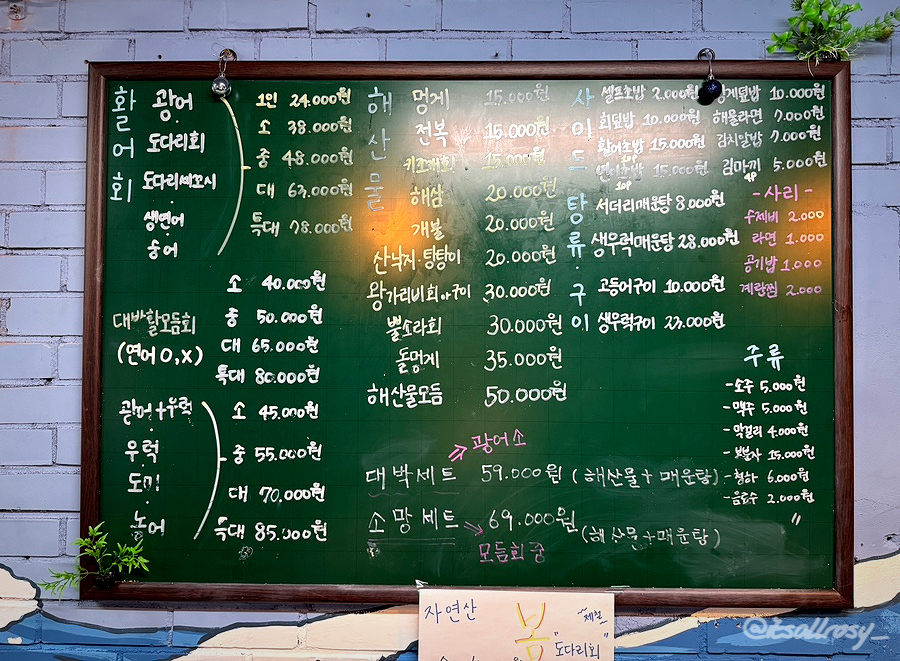 활어회
광어
도다리회
도다리세꼬시
생연어
숭어
1인 24.000원
소 38.000원
중 48.000원
대 63.000원
특대 78.000원
대박활모듬회
(연어 O,X)
소 40.000원
중 50.000원
대 65.000원
특대 80.000원
광어+우럭
우럭
도미
농어
소 45.000원
중 55.000원
대 70.000원
특대 85.000원
해산물
멍게 15.000원
전복 15.000원
키조개회 15.000원
해삼 20.000원
개불 20.000원
산낙지·탕탕이 20.000원
왕가리비회 or 구이 30.000원
뿔소라회 30.000원
돌멍게 35.000원
해산물모듬 50.000원
광어소
대박세트 59.000원 (해산물+매운탕)
소망세트 69.000원 (해산물+매운탕)
모듬회 중
사이드
셀프초밥 2.000원
회덮밥 10.000원
활어초밥 15.000원
10p
연어초밥 15.000원
10p
덮밥 10.000원
해물라면 7.000원
김치알밥 7.000원
김마끼 5.000원
4p
탕류·구이
서더리매운탕 8.000원
생우럭매운탕 28.000원
고등어구이 10.000원
생우럭구이 23.000원
-사리-
수제비 2.000
라면 1.000
공기밥 1.000
계란찜 2.000
주류
-소주 5.000원
-맥주 5.000원
-막걸리 4.000원
-복분자 15.000원
-청하 6.000원
-음료수 2.000원
자연산
봄
제철
"도다리회"
@itsallrosy_